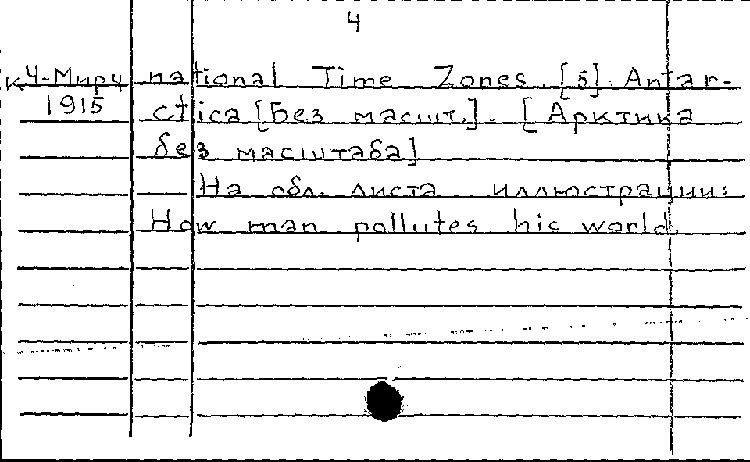 4
к4-Миру national Time Zones. [5]. Antar-
1915 ctica [Без масшт.]. [Арктика
без масштаба]
На обл. листа иллюстрации:
How man pollutes his world.